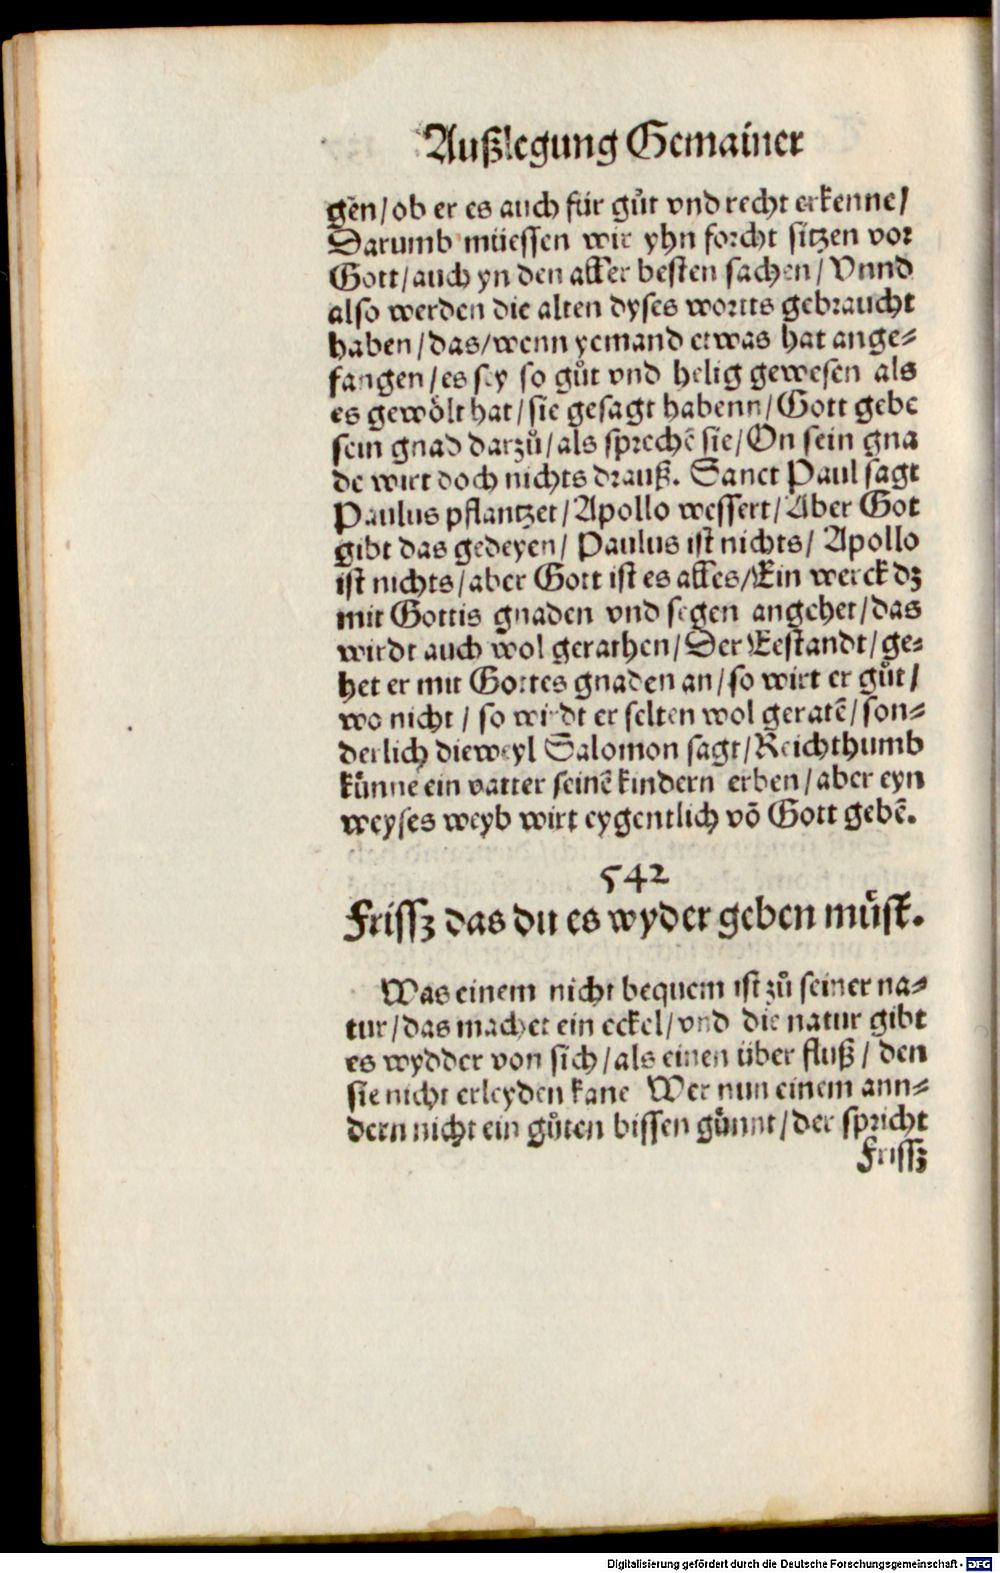 Außlegung Gemainer
gen̄/ob er es auch für gůt vnd recht erkenne/
Darumb müessen wir yhn forcht sitzen vor
Gott/auch yn den aller besten sachen/Vnnd
also werden die alten dyses wortts gebraucht
haben/das/wenn yemand etwas hat ange-
fangen/es sey so gůt vnd helig gewesen als
es gewölt hat/sie gesagt habenn/Gott gebe
sein gnad darzů/als sprechē sie/On sein gna
de wirt doch nichts drauß. Sanct Paul sagt
Paulus pflantzet/Apollo wessert/Aber Got
gibt das gedeyen/Paulus ist nichts/Apollo
ist nichts/aber Gott ist es alles/Ein werck dz
mit Gottis gnaden vnd segen angehet/das
wirdt auch wol gerathen/Der Eestandt/ge-
het er mit Gottes gnaden an/so wirt er gůt/
wo nicht/so wirdt er selten wol geratē/son-
derlich dieweyl Salomon sagt/Reichthumb
künne ein vatter seinē kindern erben/aber eyn
weyses weyb wirt eygentlich võ Gott gebē.
542
Frissz das du es wyder geben müst.
Was einem nicht bequem ist zů seiner na-
tur/das machet ein eckel/vnd die natur gibt
es wydder von sich/als einen über fluß/den
sie nicht erleyden kane Wer nun einem ann-
dern nicht ein gůten bissen günnt/der spricht
Frissz
Digitalisierung gefördert durch die Deutsche Forschungsgemeinschaft - DFG